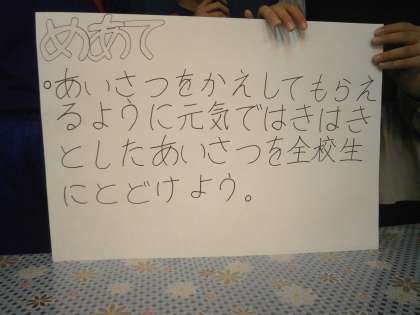 めあて
。あいさつをかえしてもらえ
るように元気ではきはき
としたあいさつを全校生
にとどけよう。